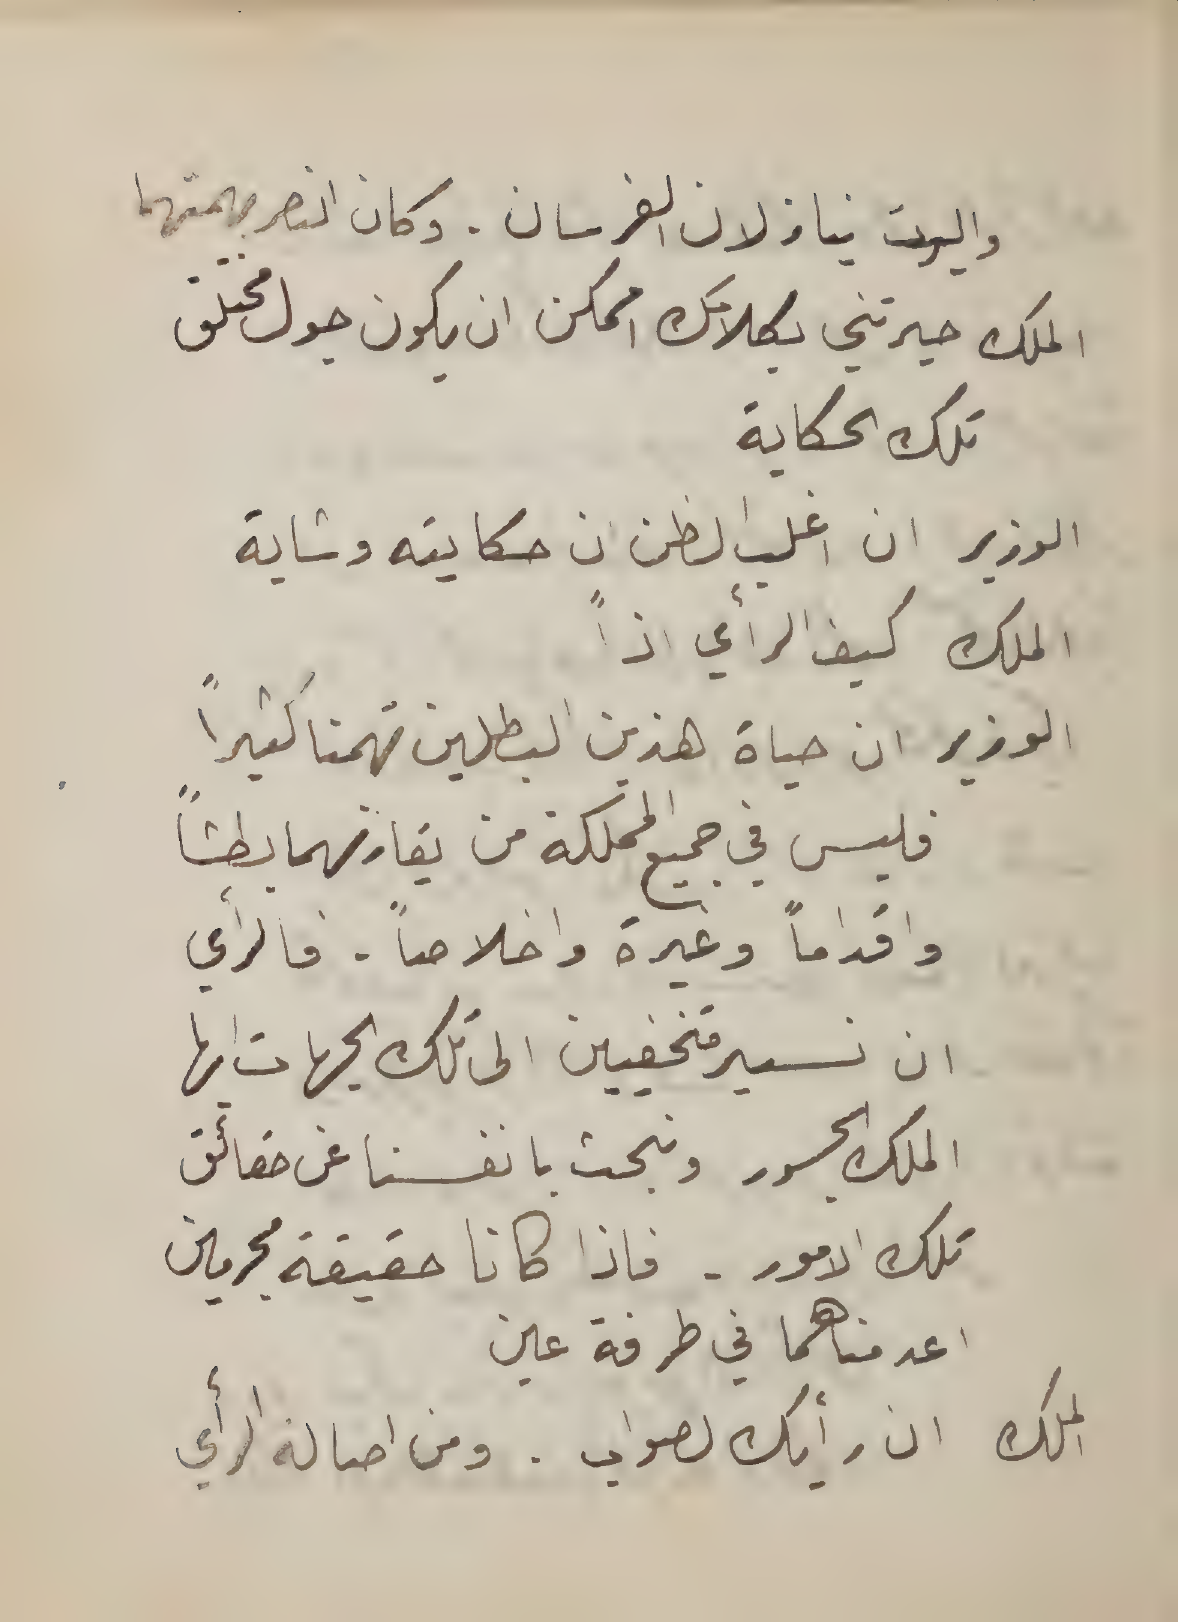 واليوت ينازلان الفرسان . وكان النصر بهمتهما
الملك حيرتني بكلامك اممكن ان يكون جول مختلق
تلك الحكاية
الوزير ان اغلب الظن ان حكايته وشاية
الملك كيف الرأي اذاً
الوزير ان حياة هذين البطلين تهمنا كثيراً
فليس في جميع المملكة من يقارنهما بطشاً
واقداماً وغيرة واخلاصاً . فالرأي
ان نسير متخفيين الى تلك الجهات ايها
الملك الجسور ونبحث بانفسنا عن حقائق
تلك الامور . فاذا كانا حقيقة مجرمين
اعدمناهما في طرفة عين
الملك ان رأيك لصواب . ومن اصالة الرأي